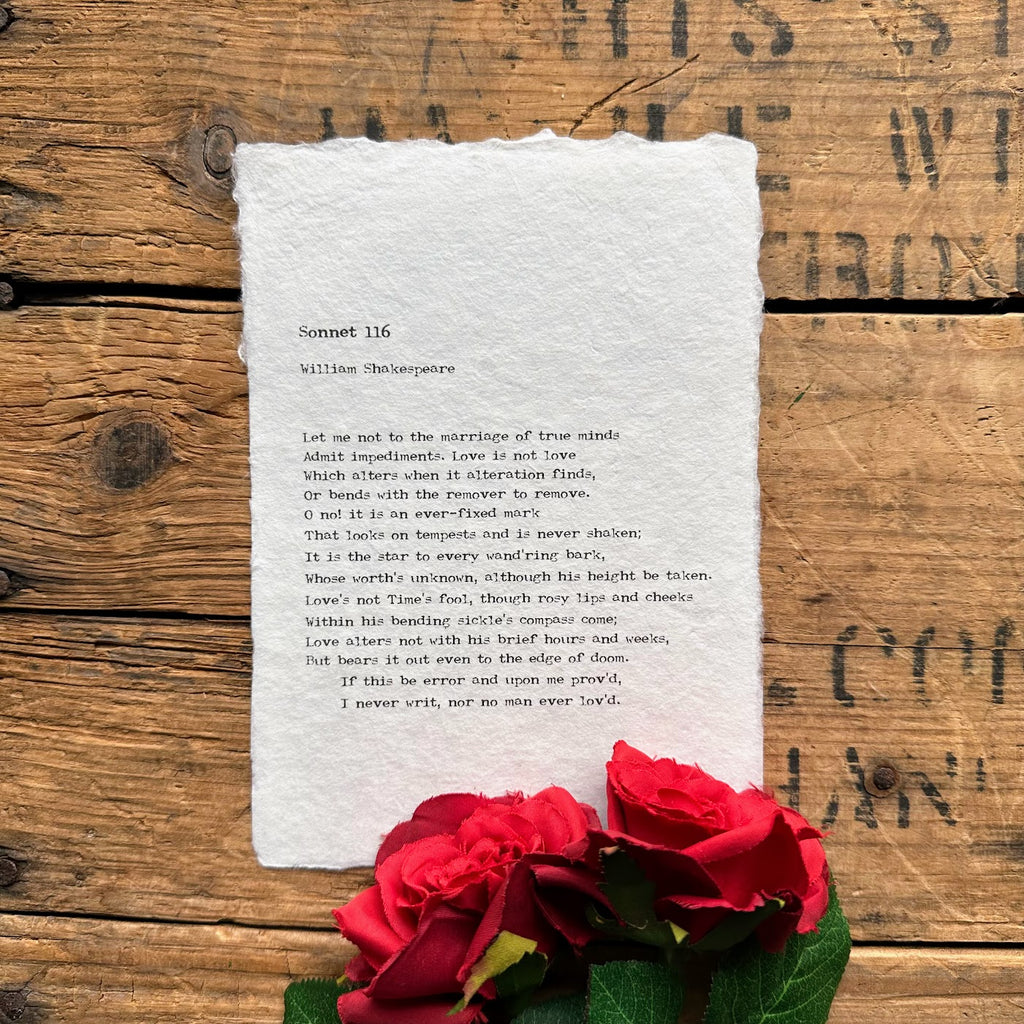 Sonnet 116
William Shakespeare
Let me not to the marriage of true minds
Admit impediments. Love is not love
Which alters when it alteration finds,
Or bends with the remover to remove.
O no! it is an ever-fixed mark
That looks on tempests and is never shaken;
It is the star to every wand'ring bark,
Whose worth's unknown, although his height be taken.
Love's not Time's fool, though rosy lips and cheeks
Within his bending sickle's compass come;
Love alters not with his brief hours and weeks,
But bears it out even to the edge of doom.
If this be error and upon me prov'd,
I never writ, nor no man ever lov'd.